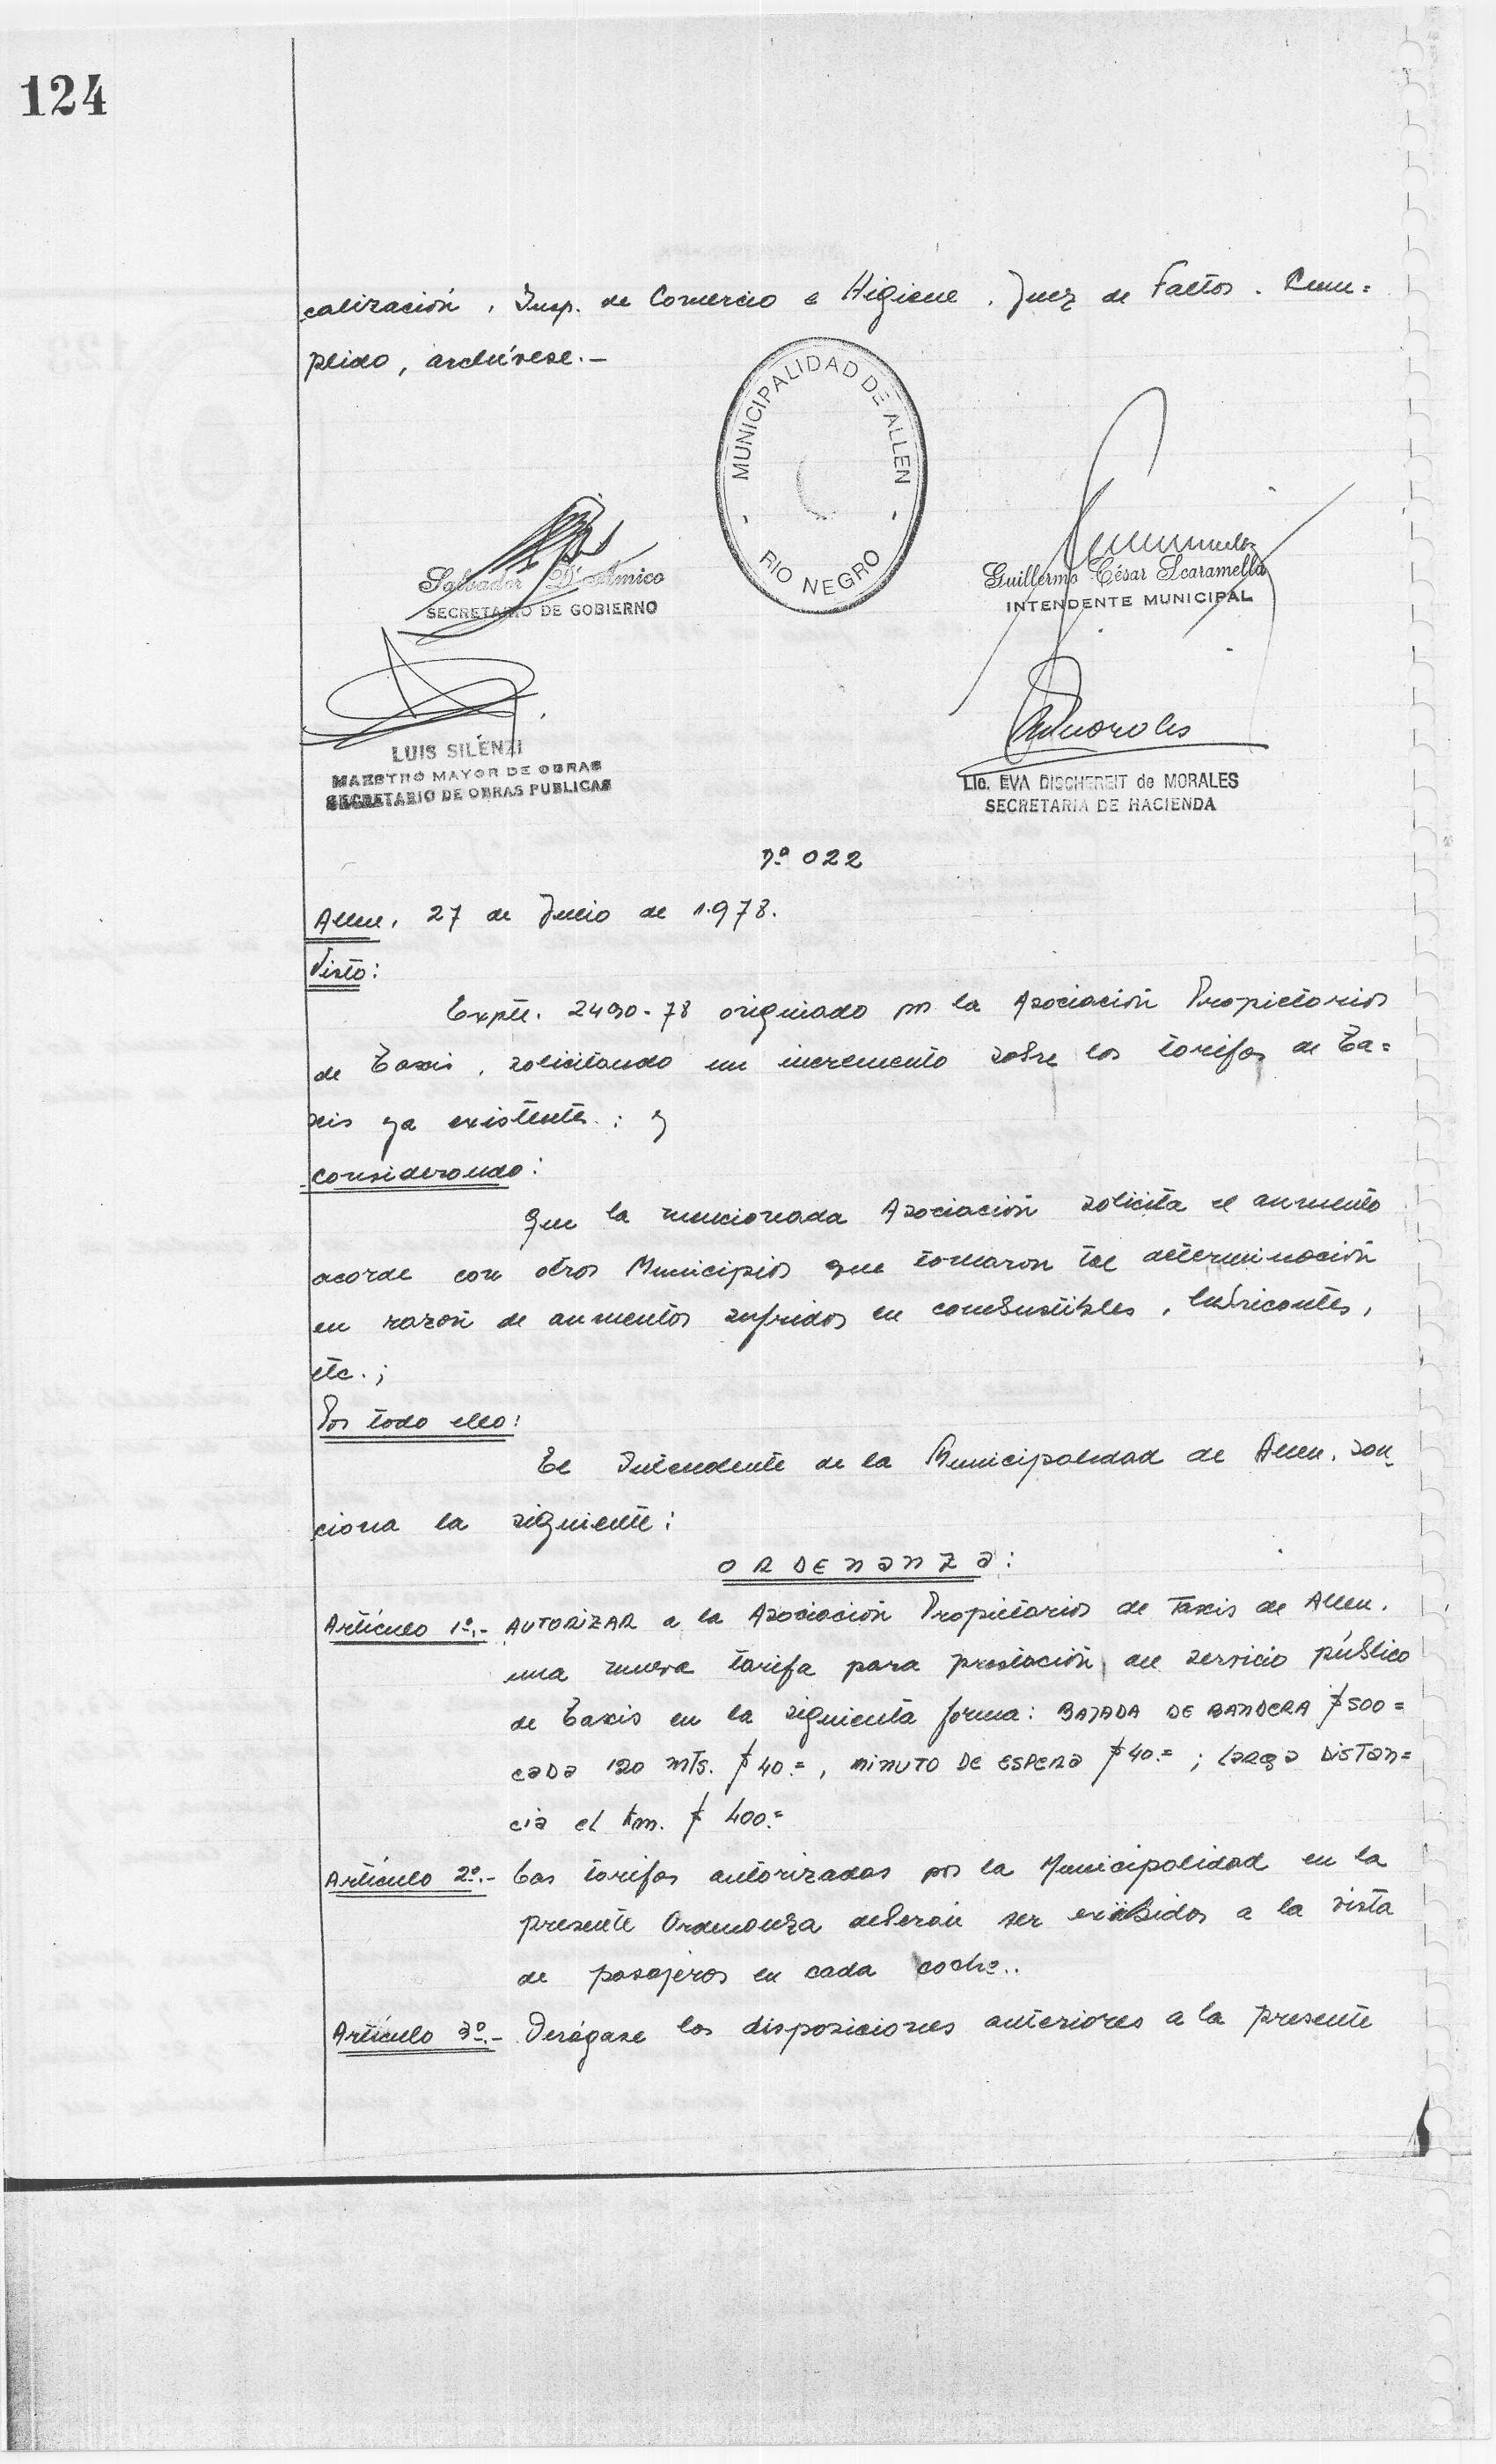 124
calización, Insp. de Comercio e Higiene, Juez de Faltos. Cum=
plido, archívese.-
MUNICIPALIDAD DE ALLEN
- RIO NEGRO -
Salvador D'Amico
SECRETARIO DE GOBIERNO
Guillermo César Scaramella
INTENDENTE MUNICIPAL
LUIS SILENZI
MAESTRO MAYOR DE OBRAS
SECRETARIO DE OBRAS PUBLICAS
Lic. EVA DISCHEREIT de MORALES
SECRETARIA DE HACIENDA
nº 022
Allen, 27 de Julio de 1.978.
Visto:
Expte. 2490-78 originado por la Asociación Propietarios
de Taxis, solicitando un incremento sobre las tarifas de Ta=
xis ya existentes; y
considerando:
Que la mencionada Asociación solicita el aumento
acorde con otros Municipios que tomaron tal determinación
en razón de aumentos sufridos en combustibles, lubricantes,
etc.;
Por todo ello:
El Intendente de la Municipalidad de Allen, san
ciona la siguiente:
ORDENANZA:
Artículo 1º.- AUTORIZAR a la Asociación Propietarios de Taxis de Allen,
una nueva tarifa para prestación del servicio público
de Taxis en la siguienta forma: BAJADA DE BANDERA $ 500=
cada 120 mts. $ 40.=, MINUTO DE ESPERA $ 40.=; Larga DISTAN=
cia el km. $ 400.=
Artículo 2º.- Las tarifas autorizadas por la Municipalidad en la
presente Ordenanza deberán ser exibidas a la vista
de pasajeros en cada coche..
Artículo 3º.- Derógase las disposiciones anteriores a la presente